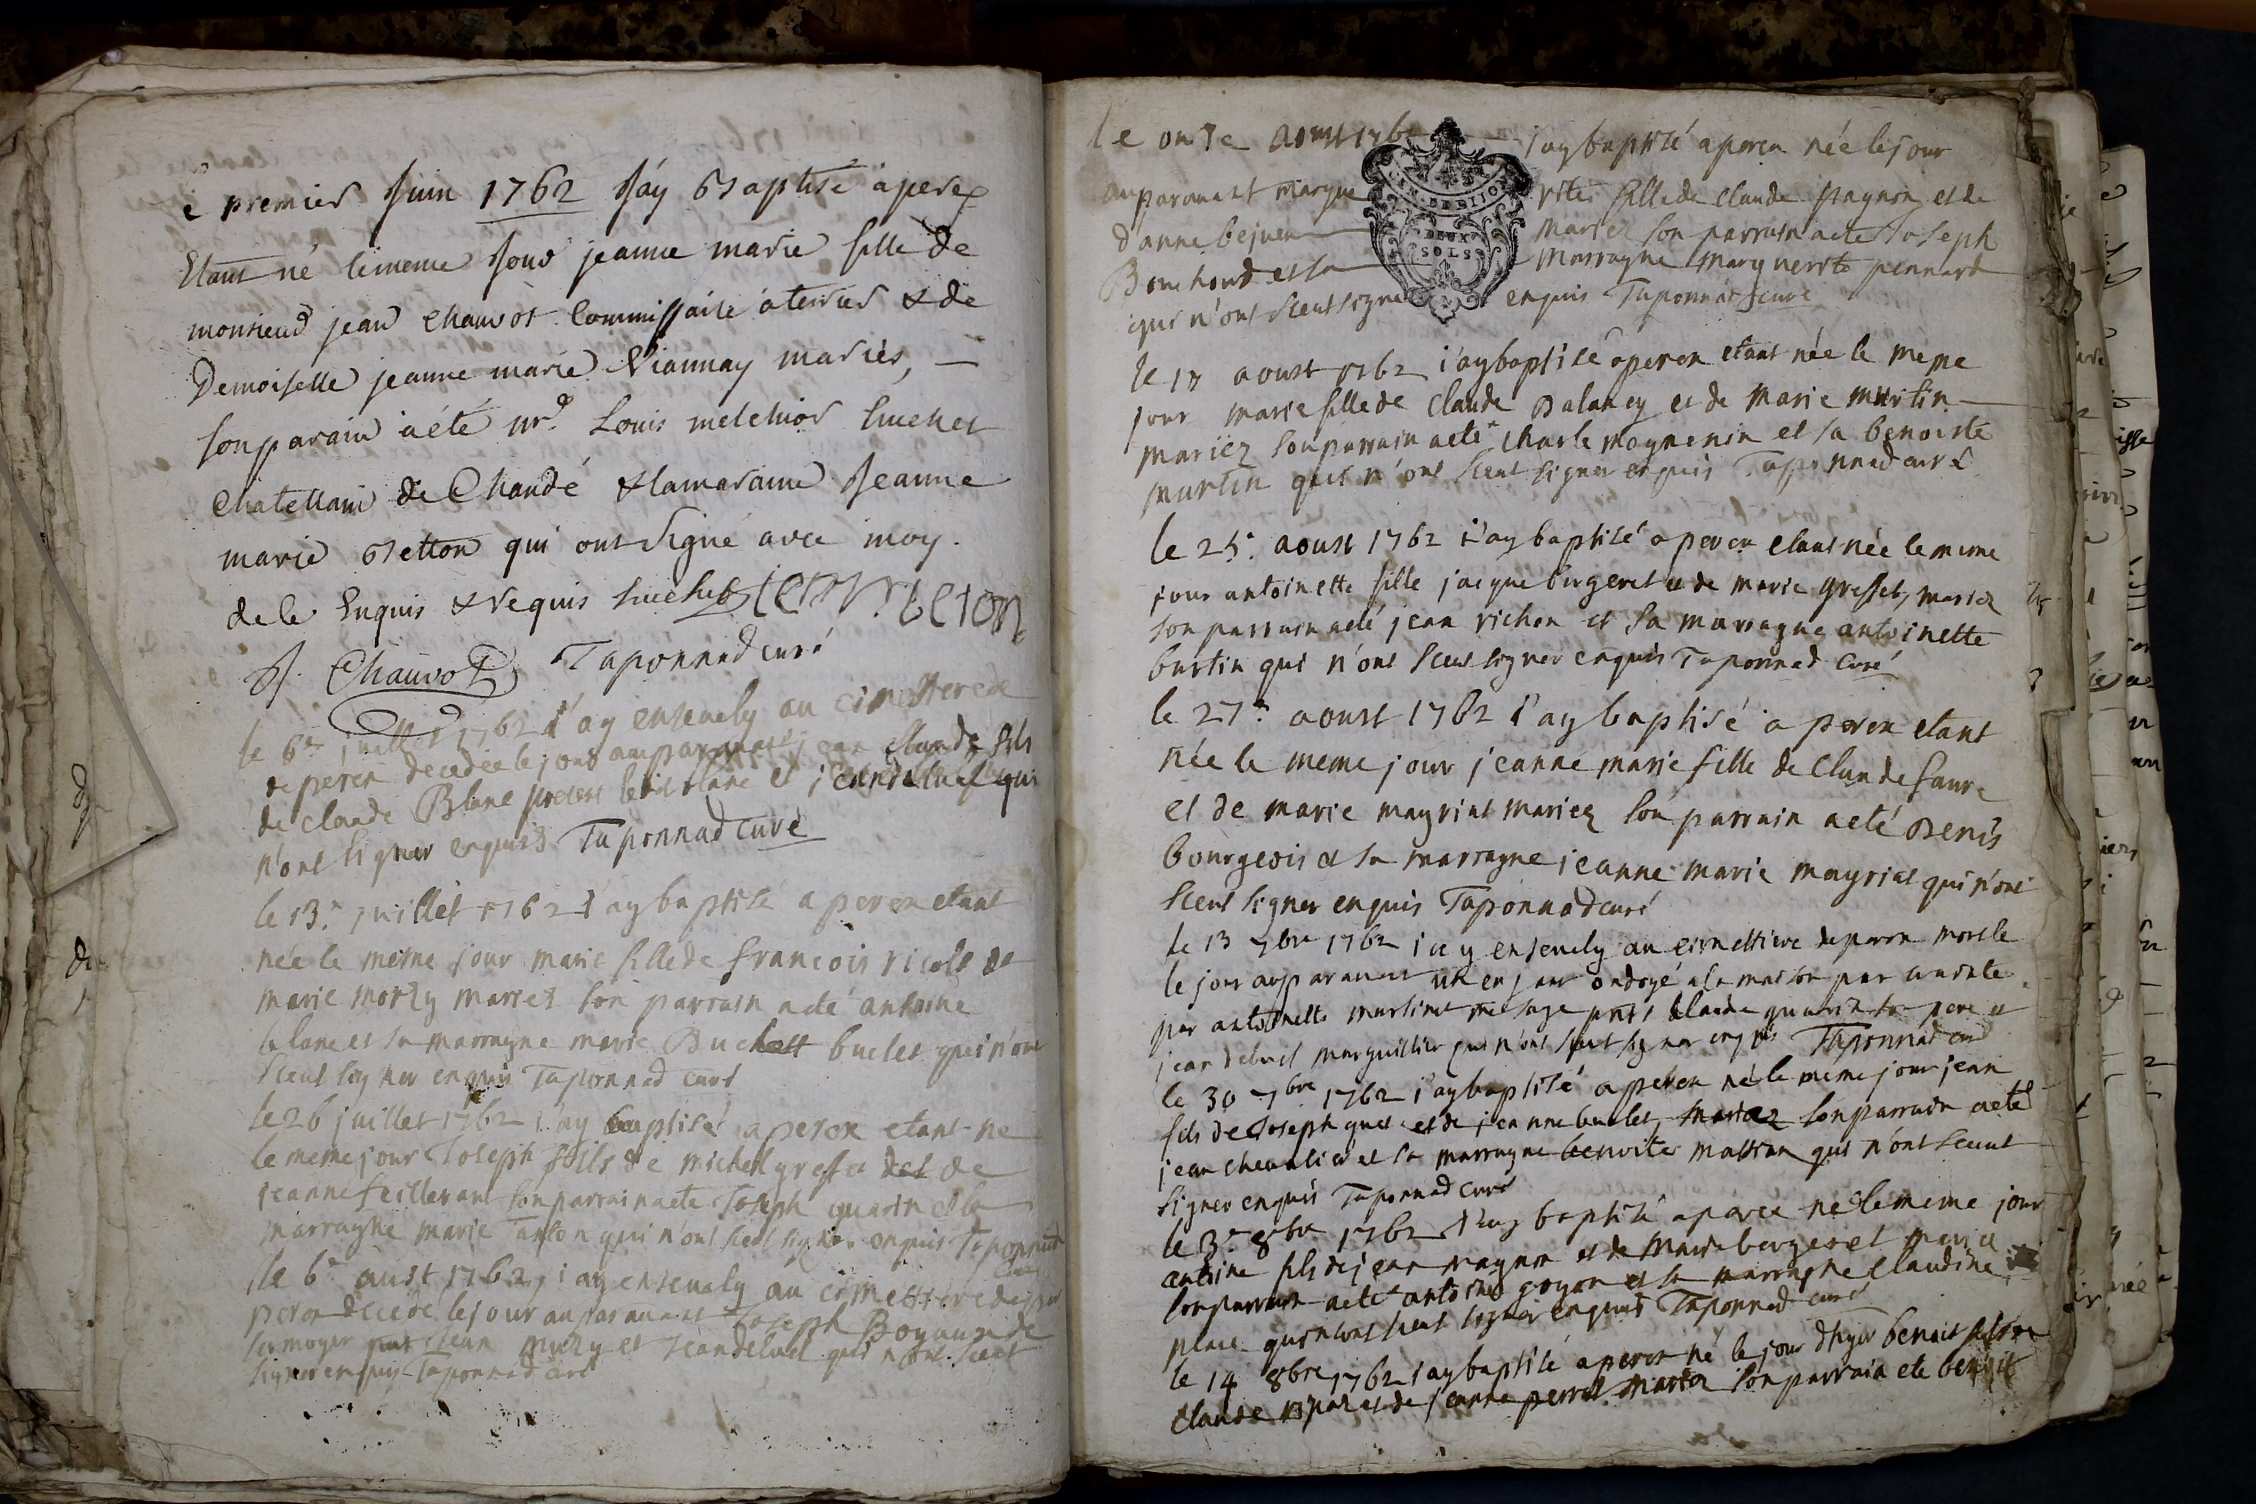 premier Juin 1762 J'áy Baptisé à perex
Etant né lememe Jour jeanne marie fille de
monsieur jean Chauvot Commissaire aterrier & de
Demoiselle jeanne marie Viannay mariés,
son parain àété mr. Louis melchior huchet
Chatellain de Chandé & lamaraine Jeanne
marie Betton qui ont Signé avec moy.
de le Enquis & requis huchet beton
J. Chauvot Taponnad curé
le 6e juillet 1762 i'ay ensevely au cimettere de
de péren decedée le jour auparavant jean Claude fils
de claude Blanc et jean deluel qui
n'ont signer enquis Taponnad curé
le 13e juillet 1762 i'ay baptisé a peren etant
née le même jour marie fille de francois ricol de
marie morzy mariez son parrain a eté antoine
blanc et sa marragne marie buclet qui n'ont
sceut signer enquis Taponnad curé
le 26 juillet 1762 i'ay baptisé a peren etant ne
le meme jour Joseph fils de michel et de
jeanne feilleran son parrain a ete Joseph guerin et la
marragne marie qui n'ont sceut signer enquis Taponnad
curé
le 6e aust 1762 i'ay ensevely au cimettiere de
peron decedé le jour auparavant Joseph
jean et jean deluel qui n'ont sceut
signer enquis Taponnad curé
le onse aoust 1762 j'ay baptisé a peren née le jour
auparavant marguerite fille de Claude pagnon et de
d'anne bejuen mariez son parrain a eté Joseph
Bouchoud et sa marragne marguerite pennard
qui n'ont sceut signer enquis Taponnad curé
EN. DE DIJON
DEUX
SOLS
le 17 aoust 1762 i'ay baptisé a peren etant née le meme
jour marie fille de Claude Balancy et de marie martin
mariez son parrain a eté Charle mognenin et sa benoiste
martin qui n'ont sceut signer enquis Taponnad curé
le 25e aoust 1762 i'ay baptisé a peren etant née le meme
jour antoinette fille jacque burgeret et de marie gressel mariez
son parrain a eté jean richon et sa marragne antoinette
burtin qui n'ont sceut signer enquis Taponnad curé
le 27e aoust 1762 i'ay baptisé a peren etant
née le meme jour jeanne marie fille de Claude faure
et de marie mayriat mariez son parrain a eté Denis
bourgeois et sa marragne jeanne marie mayriat qui n'ont
sceut signer enquis Taponnad curé
le 13 7bre 1762 i'ay ensevely au cimettiere de peron mort le
le jour auparavant un enfant ondoyé a la maison par
par antoinette martinet me sage Claude guerin son pere et
jean deluel marguillier qui n'ont sceut signer enquis Taponnad curé
le 30 7bre 1762 i'ay baptisé a peren né le meme jour jean
fils de Joseph guet et de jeanne buclet mariez son parrain a eté
jean chevalier et sa marragne benoite qui n'ont sceut
signer enquis Taponnad curé
le 3e 8bre 1762 i'ay baptisé a peren né le meme jour
antoine fils de jean magnon et de marie bergeret mariez
son parrain a eté antoine goyon et sa marragne Claudine
place qui n'ont sceut signer enquis Taponnad curé
le 14 8bre 1762 i'ay baptisé a peron né le jour d'hyer benoit fils de
Claude et de jeanne perret mariez son parrain ete benoit